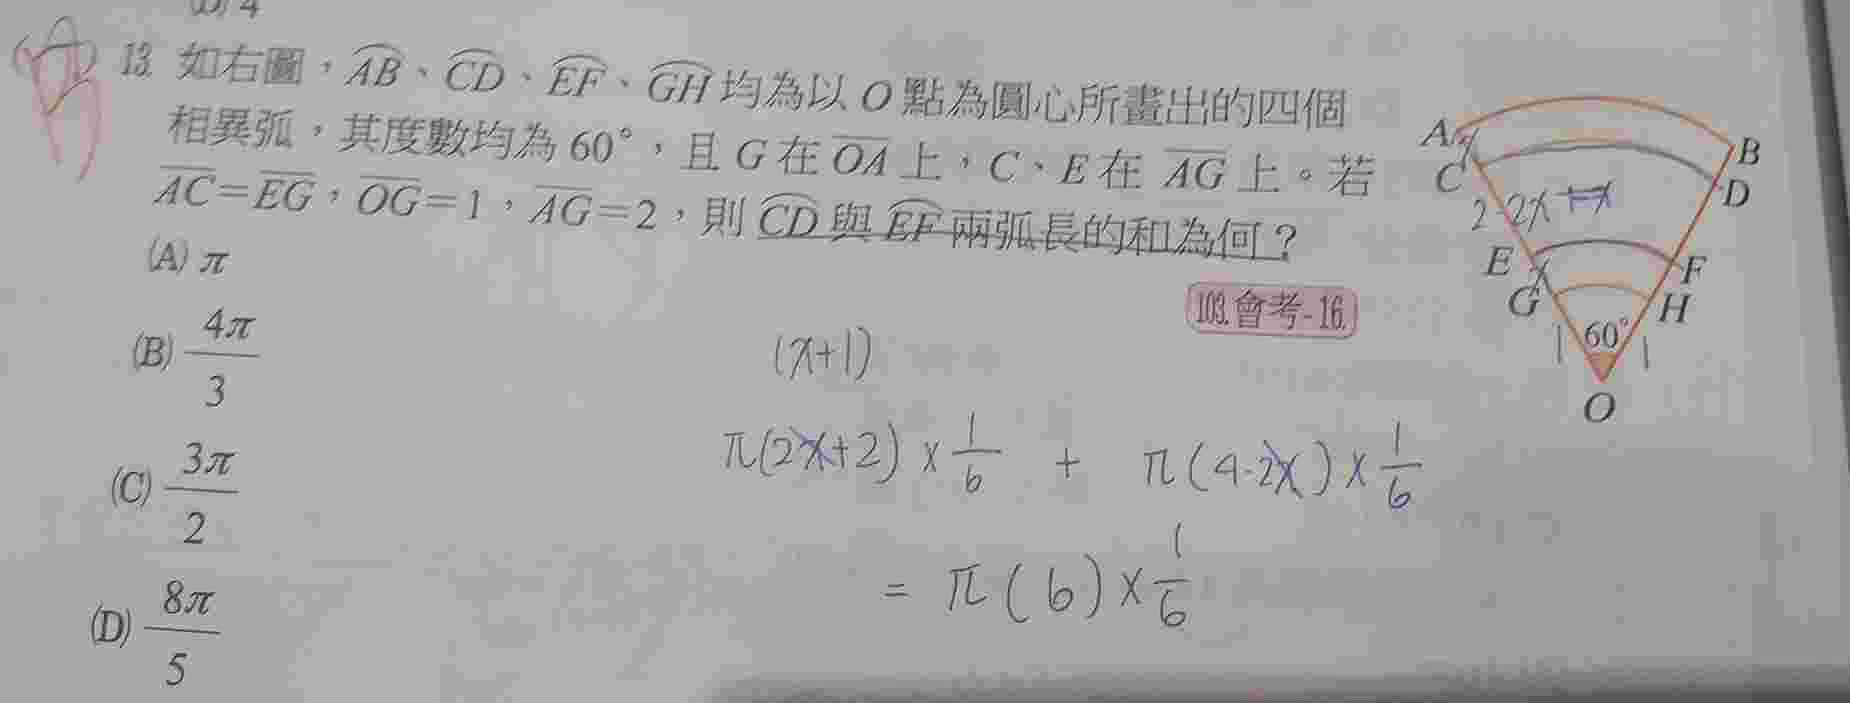 (D) 4
13. 如右圖，AB、CD、EF、GH均為以O點為圓心所畫出的四個
相異弧，其度數均為60°，且G在OA上，C、E在AG上。若
AC=EG，OG=1，AG=2，則CD與EF兩弧長的和為何？
(A) π
103.會考-16.
(B) 4π/3
(C) 3π/2
(D) 8π/5
A
B
C
D
2-2x
E
F
G
H
1
60°
1
O
(x+1)
π(2x+2)×1/6 + π(4-2x)×1/6
= π(6)×1/6